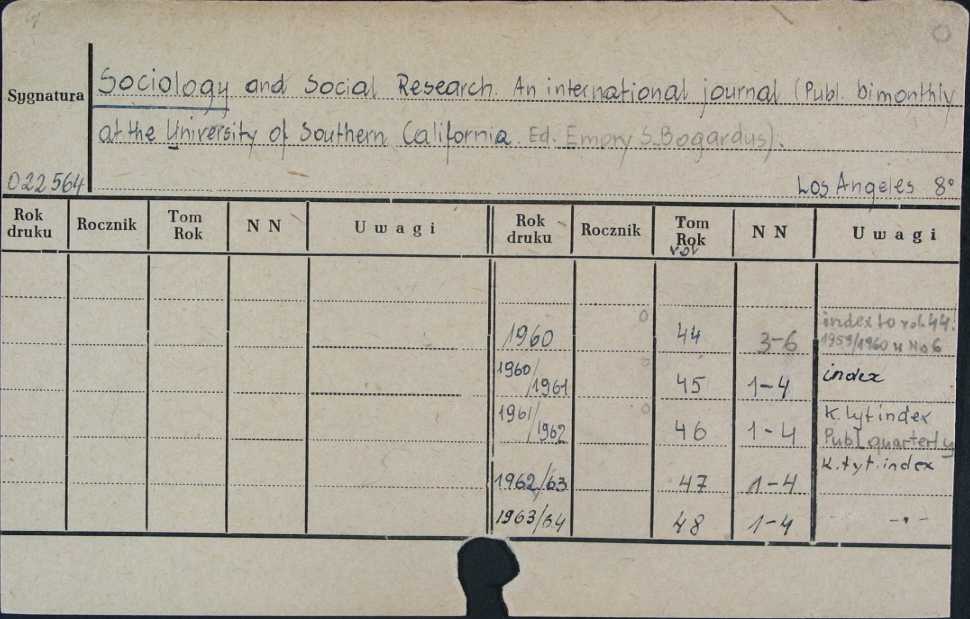 Sygnatura
Sociology and Social Research. An international journal (Publ. bimonthly
at the University of Southern California. Ed. Emory S. Bogardus).
022564 Los Angeles 8°
Rok druku Rocznik Tom Rok N N Uwagi Rok druku Rocznik Tom Rok vol N N Uwagi
1960 44 3-6 index to vol. 44. 1959/1960 w No 6
1960/1961 45 1-4 index
1961/1962 46 1-4 K. tyt index Publ quarterly
1962/63 47 1-4 K. tyt. index
1963/64 48 1-4 -"-